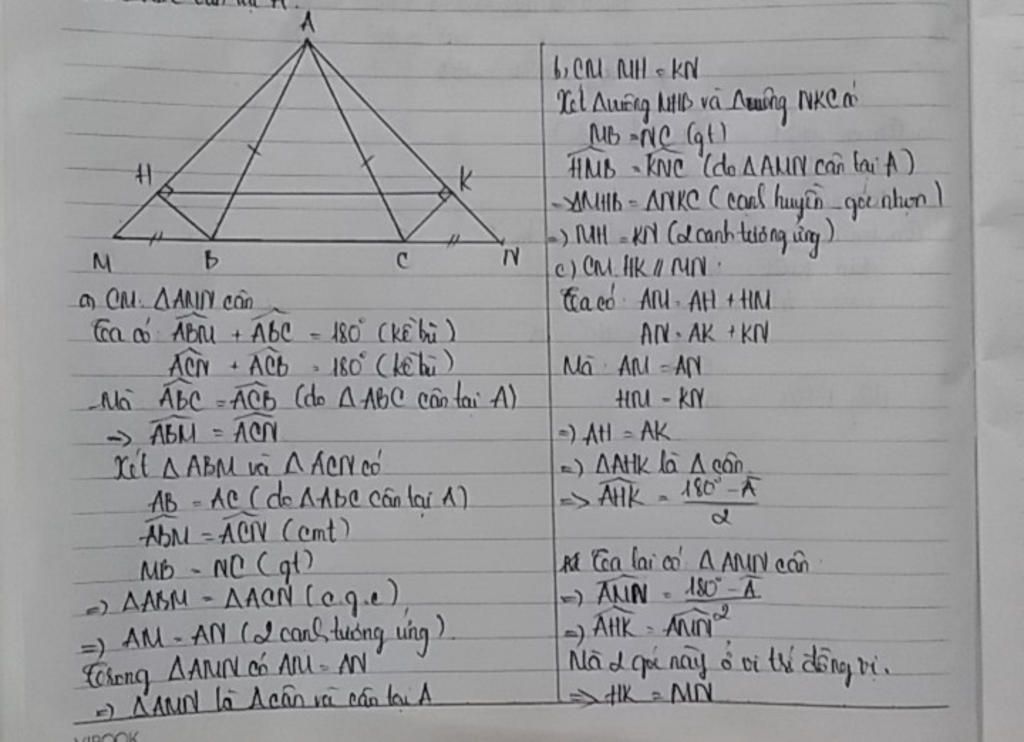 A
H
K
M
B
C
N
a) CM: ΔAMN cân
Ta có: ABM + ABC = 180° (kề bù)
ACN + ACB = 180° (kề bù)
Mà ABC = ACB (do Δ ABC cân tại A)
=> ABM = ACN
Xét Δ ABM và Δ ACN có
AB = AC (do ΔABC cân tại A)
ABM = ACN (cmt)
MB = NC (gt)
=> ΔABM = ΔACN (c.g.c)
=> AM = AN (2 cạnh tương ứng)
Trong ΔAMN có AM = AN
=> ΔAMN là Δ cân và cân tại A
b, CM MH = KN
Xét Δ vuông MHB và Δ vuông NKC có
MB = NC (gt)
HMB = KNC (do ΔAMN cân tại A)
=> ΔMHB = ΔNKC (cạnh huyền - góc nhọn)
=> MH = KN (2 cạnh tương ứng)
c) CM HK // MN
Ta có: AM = AH + HM
AN = AK + KN
Mà: AM = AN
HM = KN
=> AH = AK
=> ΔAHK là Δ cân
=> AHK = 180° - A
2
Ta lại có Δ AMN cân
=> AMN = 180° - A
2
=> AHK = AMN
Mà 2 góc này ở vị trí đồng vị.
=> HK = MN
VIBOOK